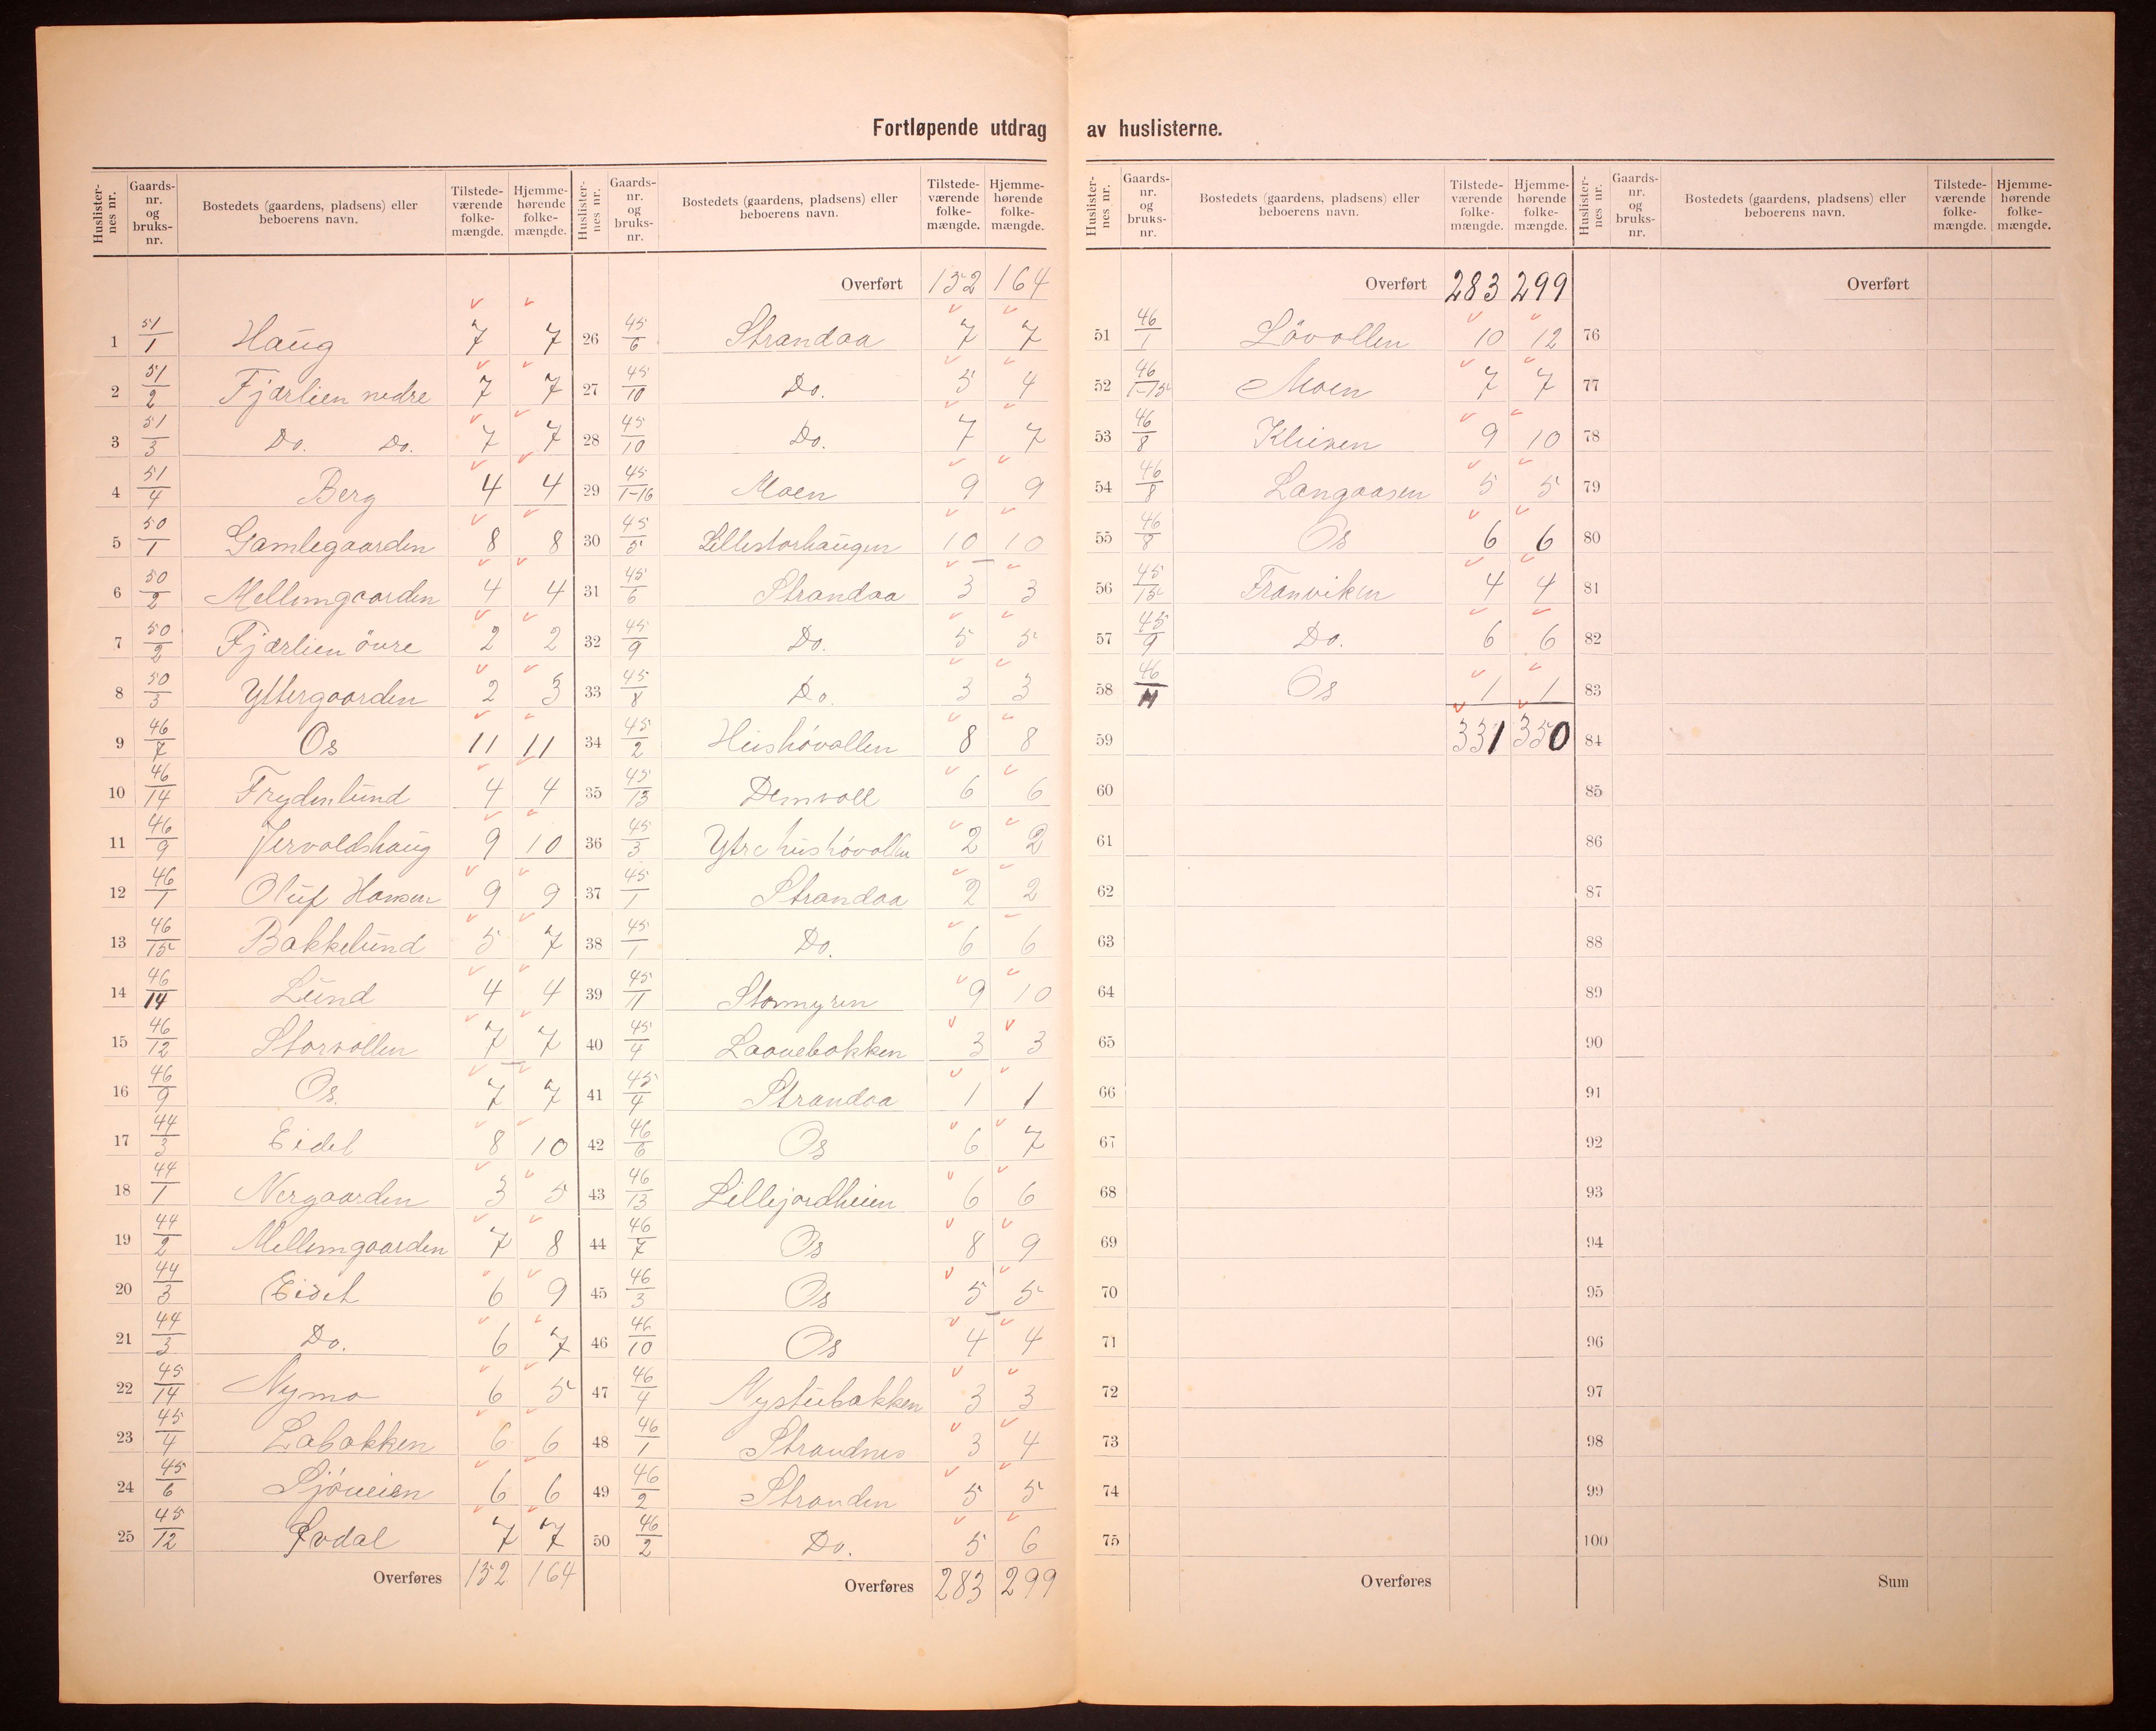 Fortløpende utdrag av huslisterne.
Huslisternes nr. Gaardsnr. og bruksnr. Bostedets (gaardens, pladsens) eller beboerens navn. Tilstedeværende folkemængde. Hjemmehørende folkemængde.
1 51/1 Haug 7 7
2 51/2 Fjærlien nedre 7 7
3 51/3 Do. Do. 7 7
4 51/4 Berg 4 4
5 50/1 Gamlegaarden 8 8
6 50/2 Mellemgaarden 4 4
7 50/2 Fjærlien övre 2 2
8 50/3 Yttergaarden 2 3
9 46/7 Os 11 11
10 46/14 Frydenlund 4 4
11 46/9 Jervoldshaug 9 10
12 46/1 Oluf Hansen 9 9
13 46/15 Bakkelund 5 7
14 46/14 Lund 4 4
15 46/12 Storvollen 7 7
16 46/9 Os. 7 7
17 44/3 Eidet 8 10
18 44/1 Nergaarden 3 5
19 44/2 Mellemgaarden 7 8
20 44/3 Eidet 6 9
21 44/3 Do. 6 7
22 45/14 Nymo 6 5
23 45/4 Labakken 6 6
24 45/6 Sjöveien 6 6
25 45/12 Lodal 7 7
Overføres 152 164
Huslisternes nr. Gaardsnr. og bruksnr. Bostedets (gaardens, pladsens) eller beboerens navn. Tilstedeværende folkemængde. Hjemmehørende folkemængde.
Overført 152 164
26 45/6 Strandaa 7 7
27 45/10 Do. 5 4
28 45/10 Do. 7 7
29 45/1-16 Moen 9 9
30 45/5 Lillestorhaugen 10 10
31 45/6 Strandaa 3 3
32 45/9 Do. 5 5
33 45/8 Do. 3 3
34 45/2 Hushövollen 8 8
35 45/13 Demvoll 6 6
36 45/3 Ytre hushövollen 2 2
37 45/1 Strandaa 2 2
38 45/1 Do. 6 6
39 45/11 Stormyren 9 10
40 45/4 Laavebakken 3 3
41 45/4 Strandaa 1 1
42 46/6 Os 6 7
43 46/13 Lillejordheim 6 6
44 46/7 Os 8 9
45 46/3 Os 5 5
46 46/10 Os 4 4
47 46/4 Nystubakken 3 3
48 46/1 Strandnes 3 4
49 46/2 Stranden 5 5
50 46/2 Do. 5 6
Overføres 283 299
Huslisternes nr. Gaardsnr. og bruksnr. Bostedets (gaardens, pladsens) eller beboerens navn. Tilstedeværende folkemængde. Hjemmehørende folkemængde.
Overført 283 299
51 46/1 Lövollen 10 12
52 46/1-15 Moen 7 7
53 46/8 9 10
54 46/8 Langaasen 5 5
55 46/8 Os 6 6
56 45/15 Franviken 4 4
57 45/9 Do. 6 6
58 46/11 Os 1 1
59 331 350
60
61
62
63
64
65
66
67
68
69
70
71
72
73
74
75
Overføres
Huslisternes nr. Gaardsnr. og bruksnr. Bostedets (gaardens, pladsens) eller beboerens navn. Tilstedeværende folkemængde. Hjemmehørende folkemængde.
Overført
76
77
78
79
80
81
82
83
84
85
86
87
88
89
90
91
92
93
94
95
96
97
98
99
100
Sum